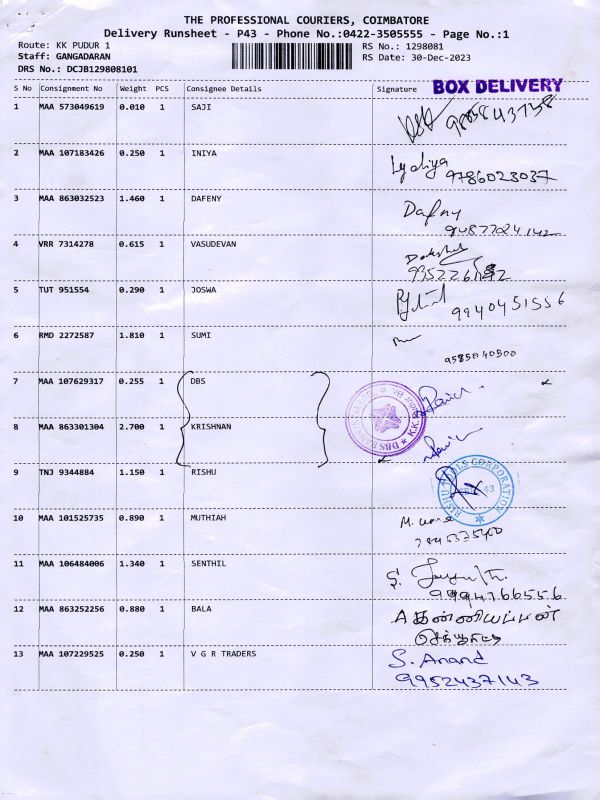 THE PROFESSIONAL COURIERS, COIMBATORE
Delivery Runsheet - P43 - Phone No.:0422-3505555 - Page No.:1
Route: KK PUDUR 1 RS No.: 1298081
Staff: GANGADARAN RS Date: 30-Dec-2023
DRS No.: DCJB129808101
S No Consignment No Weight PCS Consignee Details Signature BOX DELIVERY
1 MAA 573049619 0.010 1 SAJI
2 MAA 107183426 0.250 1 INIYA
9786023037
3 MAA 863032523 1.460 1 DAFENY Dafny
9487724142
4 VRR 7314278 0.615 1 VASUDEVAN
5 TUT 951554 0.290 1 JOSWA
9940451556
6 RMD 2272587 1.810 1 SUMI
9585040500
7 MAA 107629317 0.255 1 DBS
8 MAA 863301304 2.700 1 KRISHNAN
9 TNJ 9344884 1.150 1 RISHU
10 MAA 101525735 0.890 1 MUTHIAH
11 MAA 106484006 1.340 1 SENTHIL
9994766556
12 MAA 863252256 0.880 1 BALA
13 MAA 107229525 0.250 1 V G R TRADERS S. Anand
9952437143